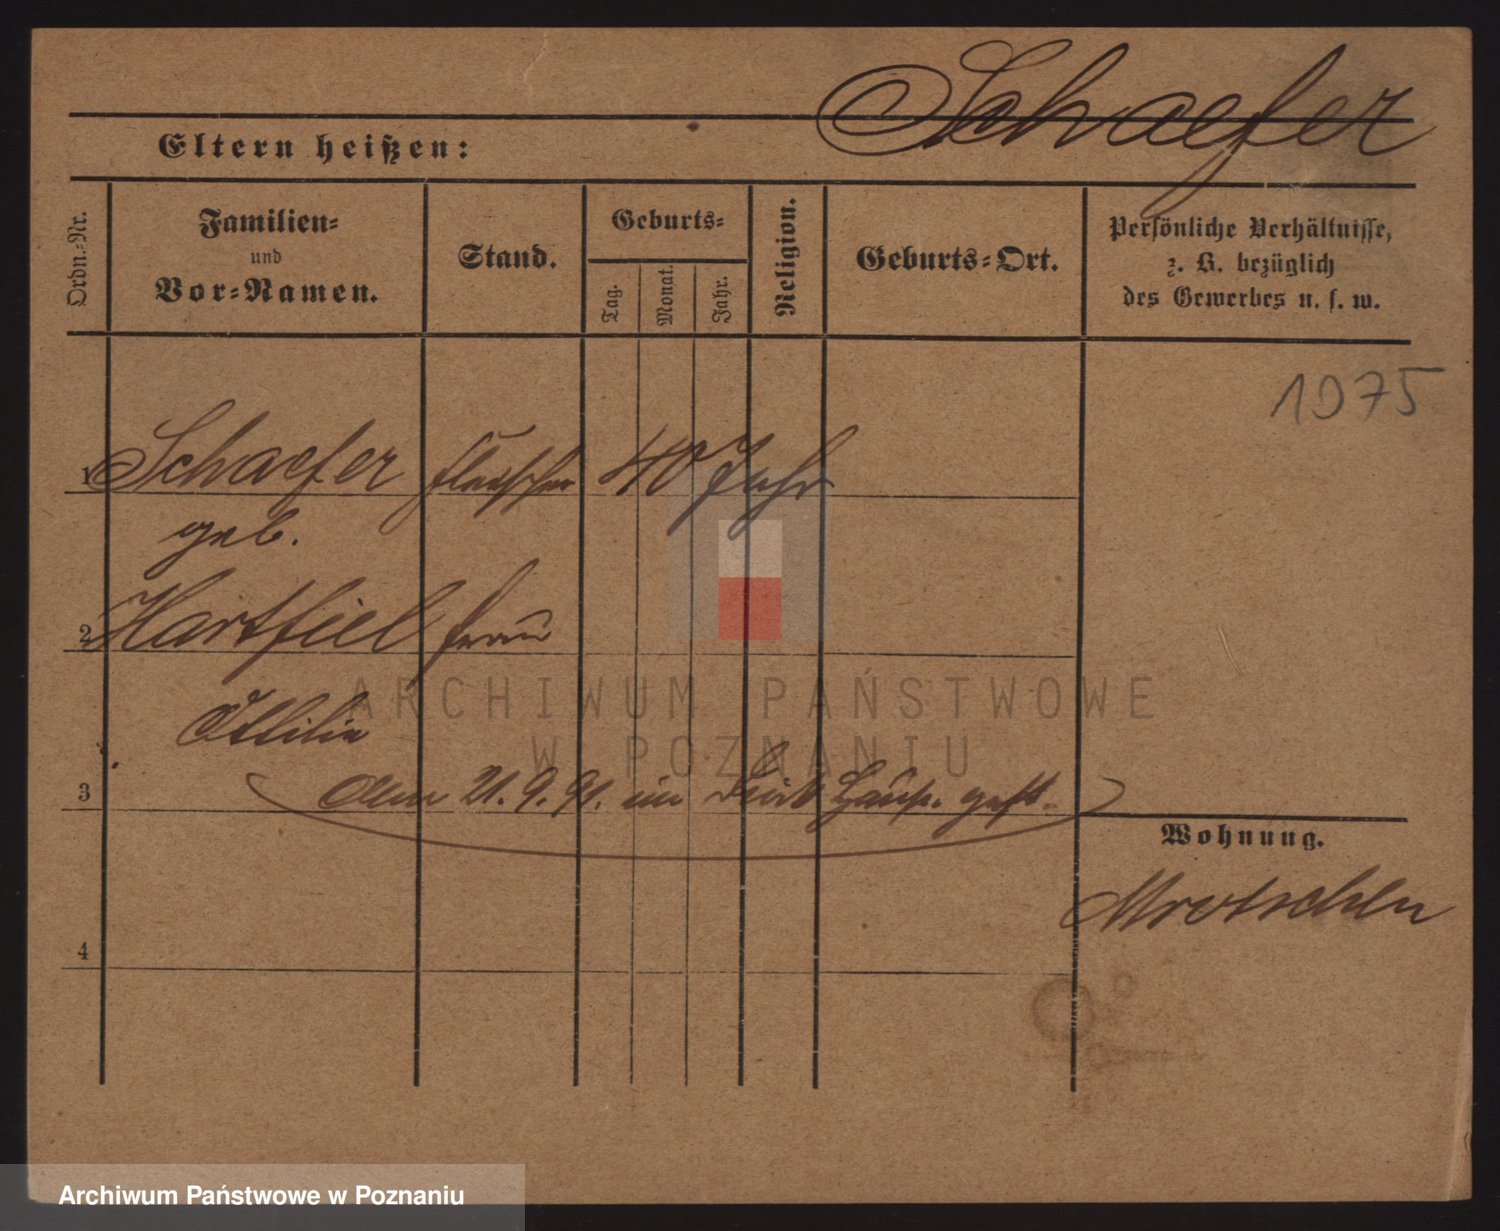 Schaefer
Eltern heißen:
Ordn.-Nr.
Familien-
und
Vor-Namen.
Stand.
Geburts-
Tag.
Monat.
Jahr.
Religion.
Geburts-Ort.
Persönliche Verhältnisse,
z. B. bezüglich
des Gewerbes u. s. w.
1075
1 Schaefer Fleischer 40 Jahr
geb.
2 Hartfiel Frau
Ottilie
ARCHIWUM PAŃSTWOWE
W POZNANIU
3 am 21.9.91. im
Wohnung.
Mrotschen
4
Archiwum Państwowe w Poznaniu